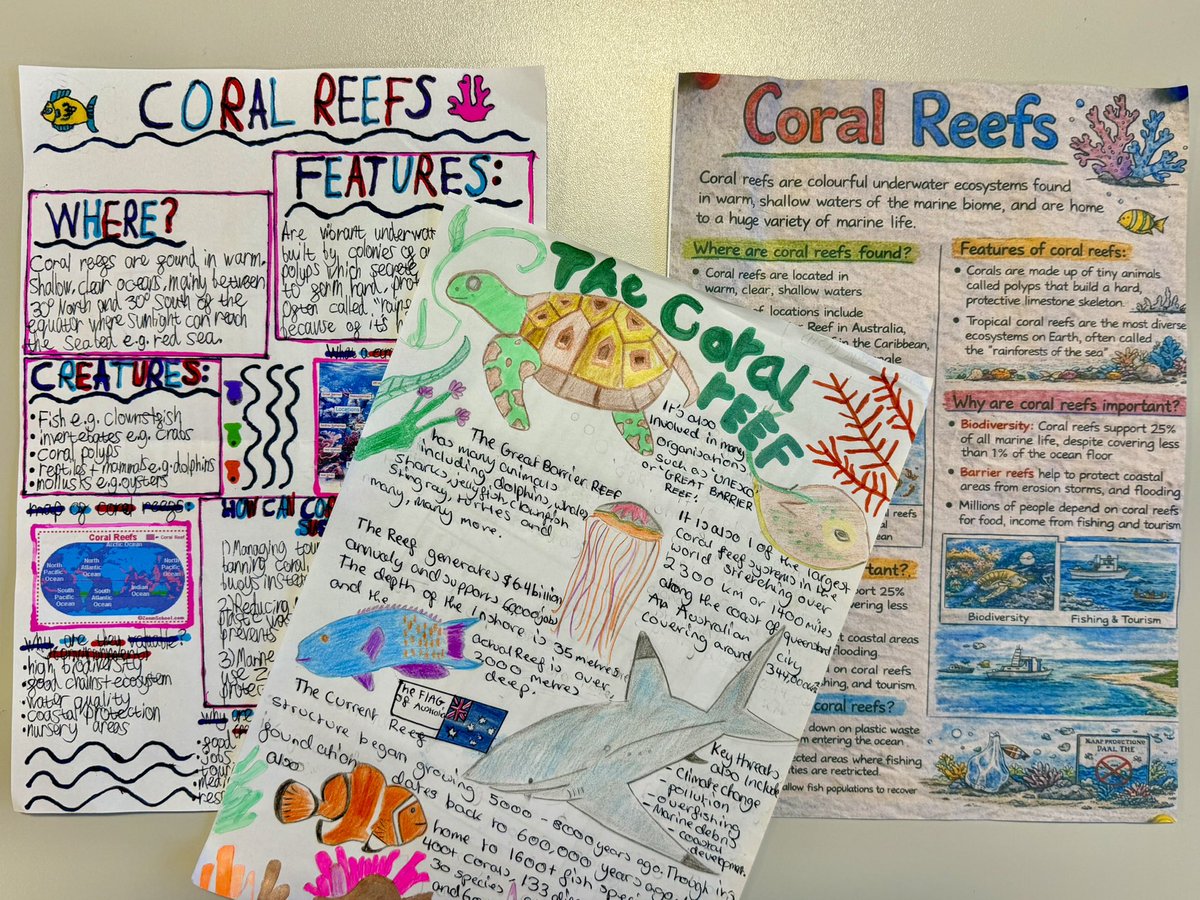 CORAL REEFS
WHERE?
Coral reefs are found in warm.
Shallow, clear oceans, mainly between
30° North and 30° South of the
equator where sunlight can reach
the Seabed e.g. red sea.
FEATURES:
Are vibrant underwat
built by colonies of
polyps which secrete
to form hard, prot
often called "rains
because of it's
CREATURES:
• Fish e.g. clownsfish
• invertebrates e.g. crabs
• coral polyps
• reptiles + mammals e.g. dolphins
• mollusks e.g. oysters
Locations
map of coral reefs:
Coral Reefs
Coral Reef
Arctic Ocean
North Pacific Ocean
North Atlantic Ocean
North Pacific Ocean
South Pacific Ocean
South Atlantic Ocean
Indian Ocean
HOW CAN CO
1) Managing tou
banning coral
buoys inste
2) Reducing
plastic was
prevents
3) Marine
use z
protec
why are they valuable:
• high biodiversity
• good chains + ecosystem
• water quality
• coastal protection
• nursery areas
why are
• food
• jobs
tour
• med
rest
The Coral
REEF
The Great Barrier Reef
has many animals
including dolphins, whales
sharks, jellyfish, clownfish
Stingray, turties and
many, many more.
It's also
involved in many
organisations
such as 'UNEXCO
or GREAT BARRIER
REEF!
The Reef generates $6.4 billion
annually and supports 6000 jobs
The depth of the Inshore is 35 metres
and the actual Reef is over,
2000 metres
deep!
It is also 1 of the largest
coral reef systems in the
world stretching over
2300 km or 1400 miles
along the coast of queensland
An Australian City
covering around 344,000
The FLAG
OF Australia
The Current Reef
structure began growing 5000 - 8000 years ago. Though its
foundation dates back to 600,000 years ago
also home to 1600+ fish speci
400+ corals, 133
30 species
and 6
Key threats
also include
- Climate change
- pollution
- overfishing
- Marine debris
- coastal
development.
Coral Reefs
Coral reefs are colourful underwater ecosystems found
in warm, shallow waters of the marine biome, and are home
to a huge variety of marine life.
Where are coral reefs found?
• Coral reefs are located in
warm, clear, shallow waters
of locations include
Reef in Australia,
f in the Caribbean,
Features of coral reefs:
• Corals are made up of tiny animals
called polyps that build a hard,
protective limestone skeleton.
• Tropical coral reefs are the most diverse
ecosystems on Earth, often called
the "rainforests of the sea"
Why are coral reefs important?
• Biodiversity: Coral reefs support 25%
of all marine life, despite covering less
than 1% of the ocean floor
• Barrier reefs help to protect coastal
areas from erosion storms, and flooding
• Millions of people depend on coral reefs
for food, income from fishing and tourism
Biodiversity
Fishing & Tourism
oral reefs
rtant?
port 25%
vering less
t coastal areas
flooding
d on coral reefs
hing, and tourism.
coral reefs?
down on plastic waste
m entering the ocean
cted areas where fishing
ties are restricted.
allow fish populations to recover
DAAL THE